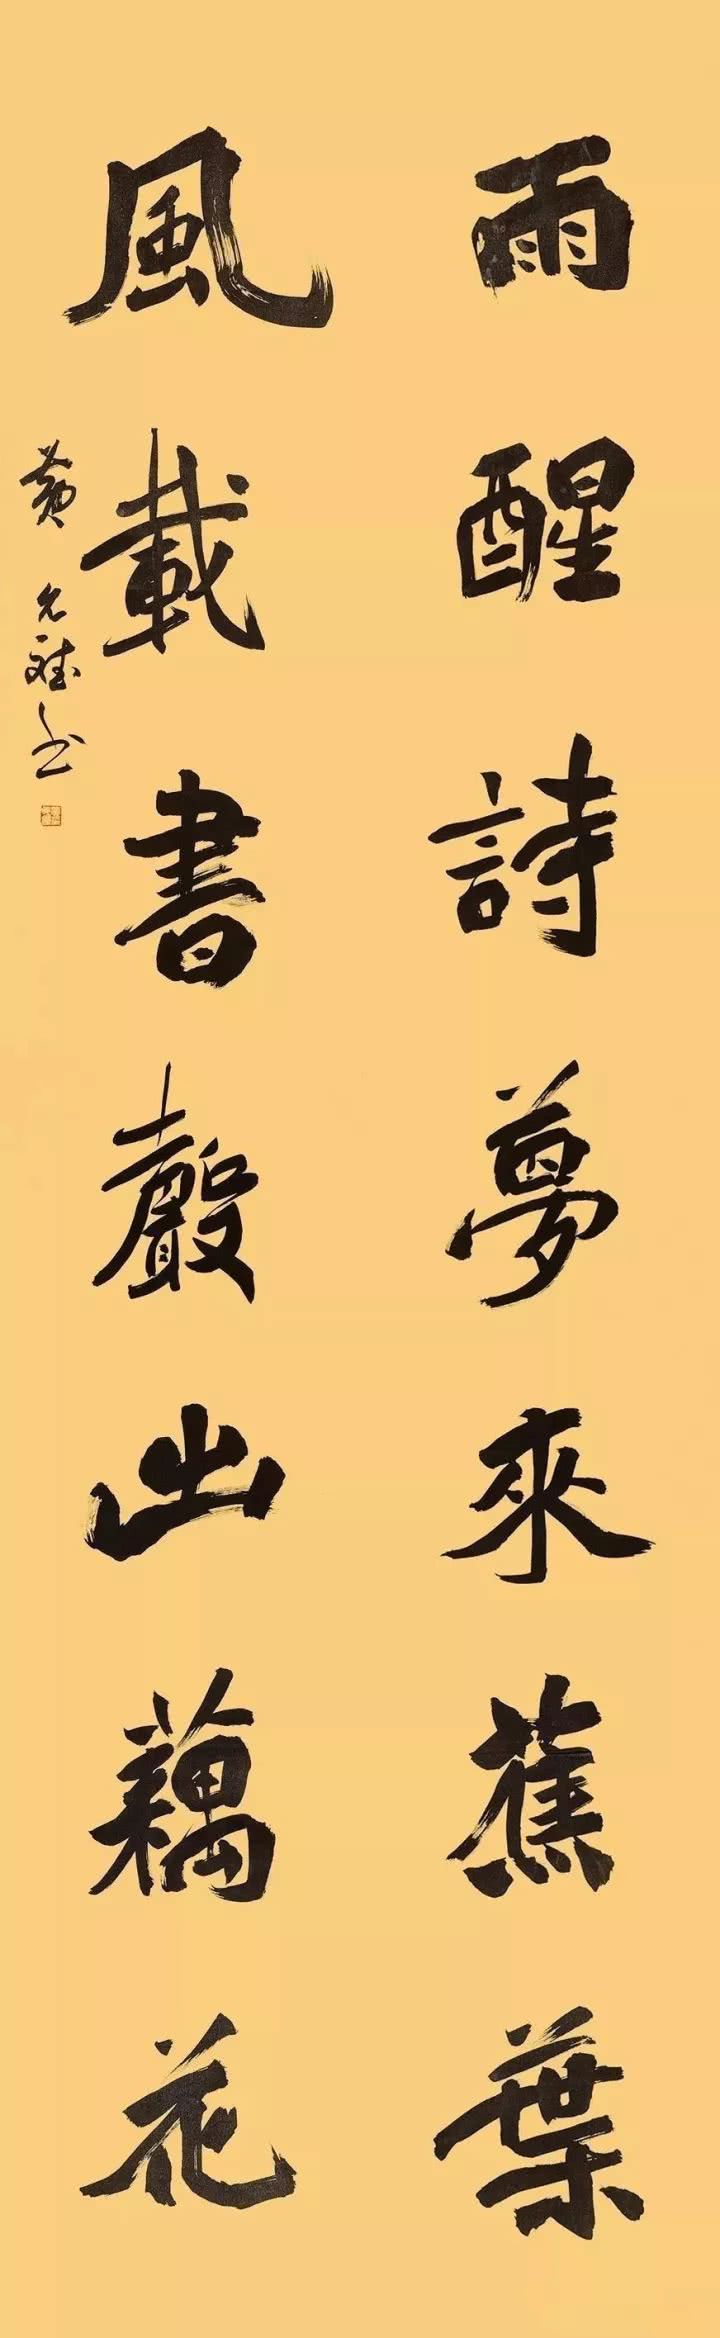 雨醒詩夢來蕉葉
風載書聲出藕花
黄允斌书